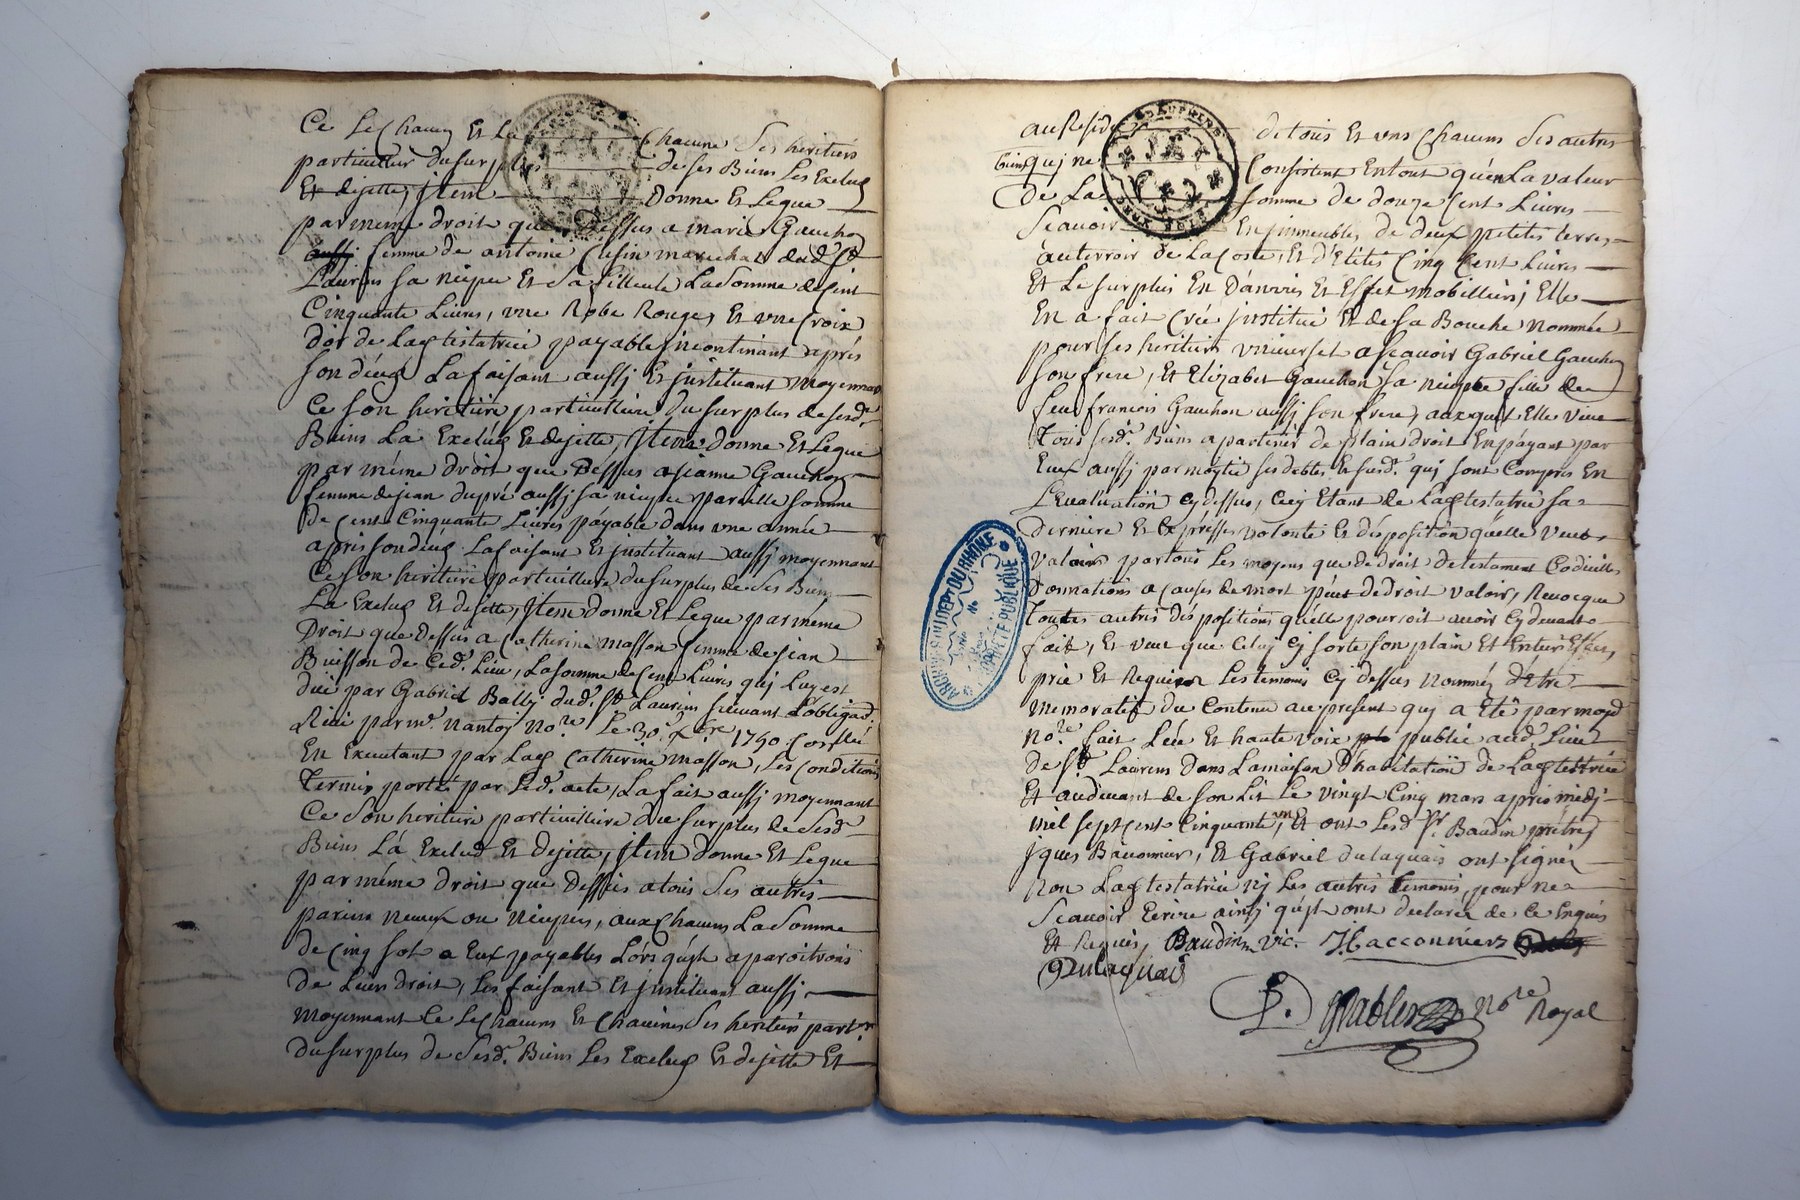 Ce Le Chacun Et La Chacune Ses heritiers
particuliers du surplus de ses Biens Les Exclud
Et dejette, Item Donne Et Legue
par meme droit que Dessus a marie Gauchon
femme de antoine Clesin marechal dud. St
Laurens sa niepce Et sa filleule La Somme de Cent
Cinquante Livres, une Robe Rouge, Et une Croix
d'or de Lad testatrice payable jncontinant aprés
son déces La faisant aussj Et jnstituant moyennant
Ce son heritiére particulliere du surplus de sesd.
Biens La Exclud Et dejette, Item donne Et Legue
par méme droit que Dessus a jeanne Gauchon
femme de jean dupré aussj sa niepce pareille somme
de Cent Cinquante Livres payable dans une année
apris son déces La faisant Et jnstituant aussj moyennant
Ce son heritiére particulliere du surplus de ses Biens
La Exclud Et dejette, Item donne Et Legue par méme
Droit que dessus a Catherine masson femme de jean
Buisson de Ced. Lieu, La somme de Cent Livres quj Luy est
düe par Gabriel Bally dud. St. Laurens suivant L'obligaõn
Receu par me. nantos nore. Le 30. xbre 1750.
En Executant par Lad Catherine masson, Les Conditions
Termes porté par Led. acte, La fait aussj moyennant
Ce Son heritiere particulliere du surplus de Sesd
Biens Lá Exclud Et Dejette, jtem donne Et Legue
par méme droit que Dessus a tous Ses autres
parens neveux ou niepces, aux Chacuns La Somme
de Cinq sol a Eux payables Lórs qu'jls aparoitrons
de Leurs droit, Les faisant Et jnstituant aussj
moyennant Ce Le Chacuns Et Chacunes Ses heritiers partrs
du surplus de Sesd. Biens Les Exclud Et dejette Et
au Resid de tous Et uns Chacuns Ses autres
biens quj ne Consistent En tout qu'en La valeur
De La somme de douze Cent Livres
Scavoir En jmmeubles de deux petites terres
au terroir de La Coste, Et d'Elites Cinq Cent Livres
Et Le surplus En Danrés Et Effet mobilliers; Elle
En a fait Crée jnstitué Et de sa Bouche nommée
pour ses heritiers universel a scavoir Gabriel Gauchon
son frere, Et Elizabet Gauchon sa niepce fille de
feu francois Gauchon aussj son frere, auxquels Elle veut
Tous sesd. Biens apartenir de plain droit En payant par
Eux aussj par moytié ses debtes Et susd. quj sont Compris En
L'Evaluation Cy dessus, Cecy Etant de Lad testatrice sa
derniere Et Expresse volonté Et disposition quélle veut
valoir par tous Les moyens que de droit de testament Codicille
Donnations a Causes de mort péut de droit valoir, Revocque
Toutes autres dispositions qu'elle pourroit avoir Cy devant
fait, Et veut que Celuy Cy sorte son plain Et Entier Effet,
prié Et Requis Les temoins Cy dessus nommés d'étre
memoratif du Contenu au present quj a Eté par moyd
nore. fait Léu Et haute voix publié aud. Lieu
de St. Laurens dans La maison D'habitation de Lad testtrice
Et au devant de son Lit Le vingt Cinq mars apres midj
mil sept cent Cinquante un, Et ont Lesd Sr. Baudin prétre,
jques Bâconnier, Et Gabriel dulaquais ont signéz
non Lad testatrice nj Les autres temoins, pour ne
Scavoir Ecrire ainsj qu'jls ont declaréz de Ce Enquis
Et Requis, Baudin vic. J Bacconnier
Dulaquais
Nore Royal
ARCHIVES DU DEPT DU RHONE
PROPRIETE PUBLIQUE